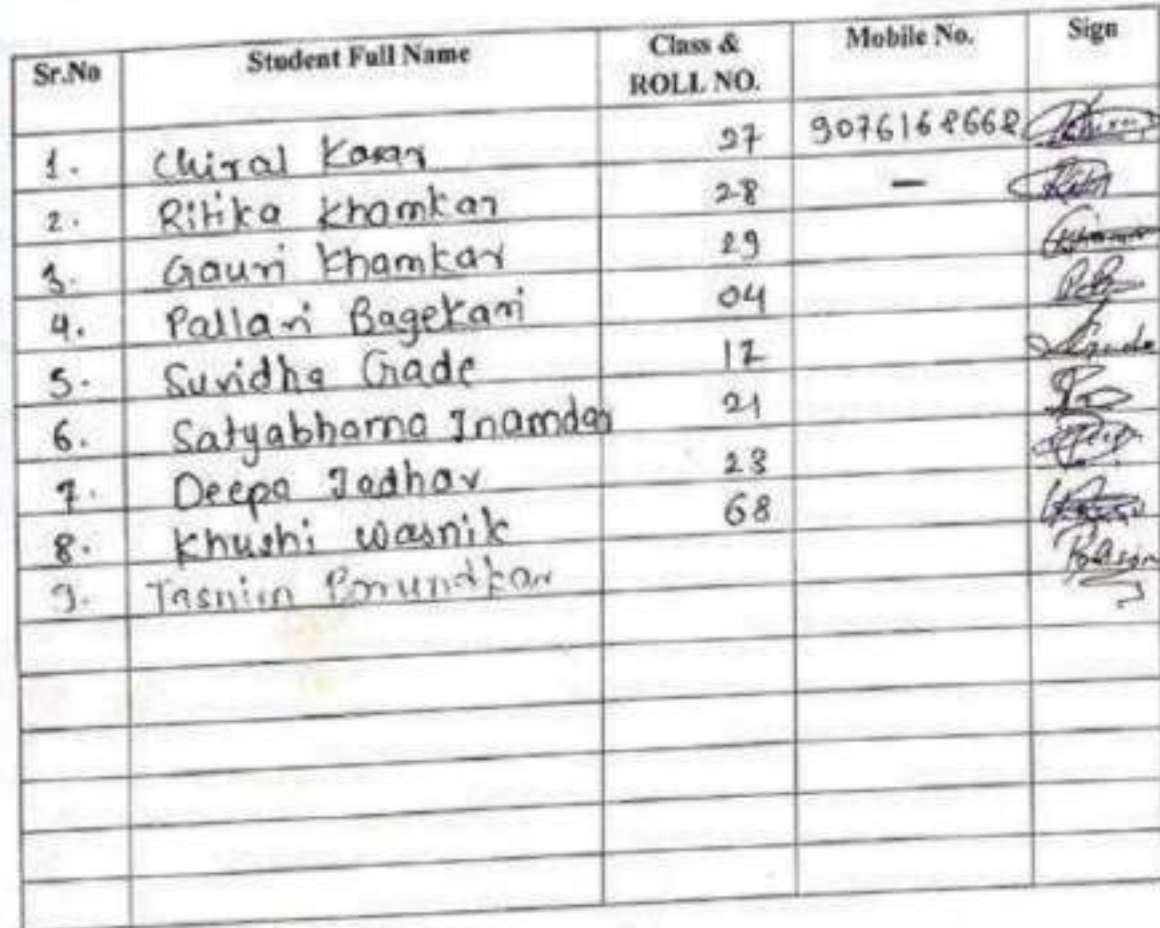 Sr.No Student Full Name Class & ROLL NO. Mobile No. Sign
1. Chiral Kasar 27 9076168668
2. Ritika Khamkar 28 —
3. Gauri Khamkar 29
4. Pallavi Bagekari 04
5. Suvidha Gade 12
6. Satyabhama Inamdar 21
7. Deepa Jadhav 23
8. Khushi Wasnik 68
9. Tasnim